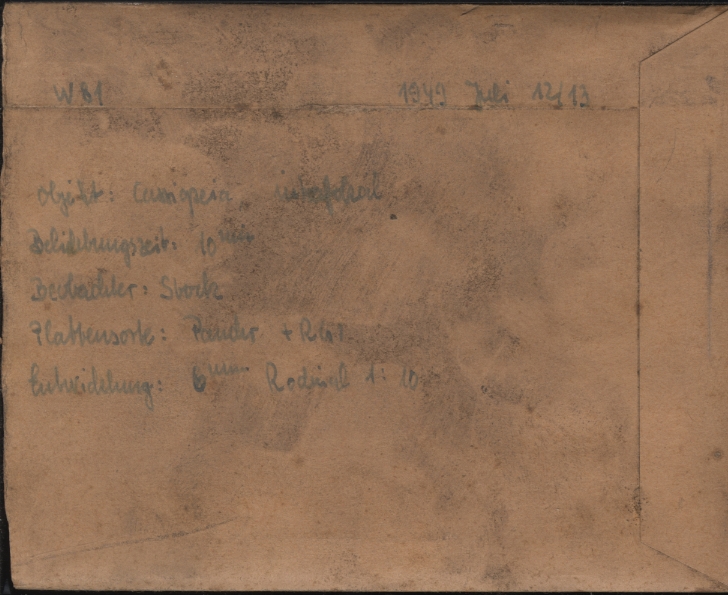 W 81 1949 Juli 12/13
Objekt: Cassiopeia intrafokal
Belichtungszeit: 10 min
Beobachter: Stock
Plattensorte: + RG1
Entwicklung: 6 min Rodinal 1:10